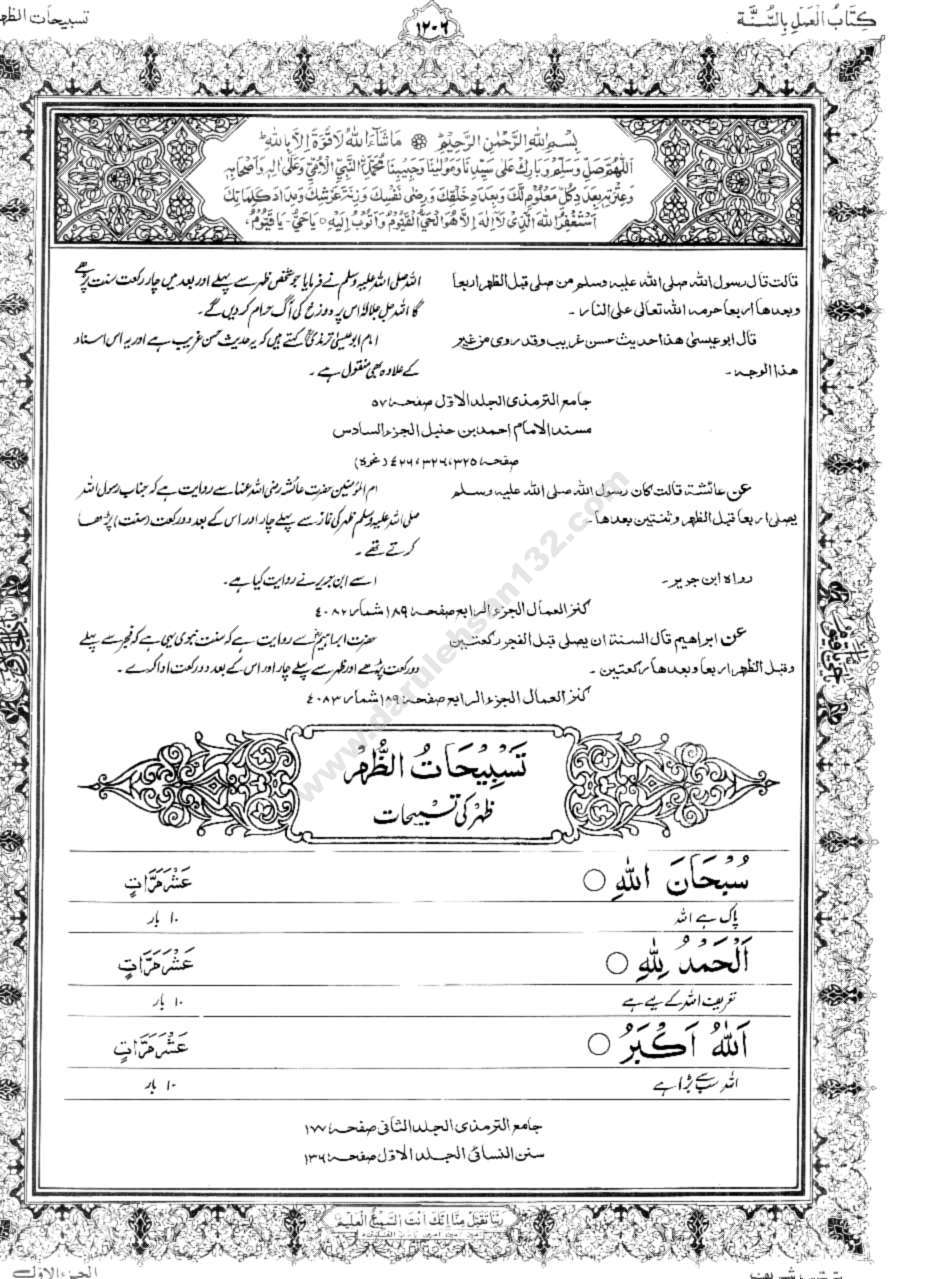 كِتَابُ الْعَمَلِ بِالسُّنَّة
١٢٠٦
تسبيحات الظهر
بِسْمِ اللهِ الرَّحْمٰنِ الرَّحِيْمِ مَا شَاءَ اللهُ لَا قُوَّةَ اِلَّا بِاللهِ
اَللّٰهُمَّ صَلِّ وَسَلِّمْ وَبَارِكْ عَلٰى سَيِّدِنَا وَمَوْلٰينَا وَحَبِيْبِنَا مُحَمَّدِنِ النَّبِيِّ الْاُمِّيِّ وَعَلٰى اٰلِهٖ وَاَصْحَابِهٖ
وَعِتْرَتِهٖ بِعَدَدِ كُلِّ مَعْلُوْمٍ لَّكَ وَبِعَدَدِ خَلْقِكَ وَرِضٰى نَفْسِكَ وَزِنَةِ عَرْشِكَ وَمِدَادِ كَلِمَاتِكَ
اَسْتَغْفِرُ اللهَ الَّذِىْ لَآ اِلٰهَ اِلَّا هُوَ الْحَىُّ الْقَيُّوْمُ وَاَتُوْبُ اِلَيْهِ يَا حَىُّ يَا قَيُّوْمُ
قالت قال رسول الله صلى الله عليه وسلم من صلى قبل الظهر اربعا
وبعدها اربعا حرمه الله تعالى على النار۔
قال ابو عيسىٰ هذا حديث حسن غريب وقد روى من غير
هذا الوجه۔
اللہ صلی اللہ علیہ وسلم نے فرمایا جو شخص ظہر سے پہلے اور بعد میں چار رکعت سنت پڑھے
گا اللہ جل جلالہٗ اس پر دوزخ کی آگ حرام کر دیں گے۔
امام ابو عیسیٰ ترمذیؒ کہتے ہیں کہ یہ حدیث حسن غریب ہے اور یہ اس اسناد
کے علاوہ بھی منقول ہے۔
جامع الترمذى الجلد الاوّل صفحه ٥٧
مسند الامام احمد بن حنبل الجزء السادس
صفحه ٣٢٥، ٣٢٦، ٤٢٦ (نحوه)
عن عائشة قالت كان رسول الله صلى الله عليه وسلم
يصلى اربعا قبل الظهر وثنتين بعدها۔
رواه ابن جرير۔
ام المومنین حضرت عائشہ رضی اللہ عنہا سے روایت ہے کہ جناب رسول اللہ
صلی اللہ علیہ وسلم ظہر کی نماز سے پہلے چار اور اس کے بعد دو رکعت (سنت) پڑھا
کرتے تھے۔
اسے ابن جریر نے روایت کیا ہے۔
كنز العمال الجزء الرابع صفحه ١٨٩ شمار ٤٠٨٢
عن ابراهيم قال السنة ان يصلى قبل الفجر ركعتين
وقبل الظهر اربعا وبعدها ركعتين۔
حضرت ابراہیمؒ سے روایت ہے کہ سنت نبوی یہی ہے کہ فجر سے پہلے
دو رکعت پڑھے اور ظہر سے پہلے چار اور اس کے بعد دو رکعت ادا کرے۔
كنز العمال الجزء الرابع صفحه ١٨٩ شمار ٤٠٨٣
تَسْبِيْحَاتُ الظُّهْرِ
ظہر کی تسبیحات
سُبْحَانَ اللهِ عَشْرَ مَرَّاتٍ
پاک ہے اللہ ۱۰ بار
اَلْحَمْدُ لِلّٰهِ عَشْرَ مَرَّاتٍ
تعریف اللہ کے لیے ہے ۱۰ بار
اَللهُ اَكْبَرُ عَشْرَ مَرَّاتٍ
اللہ سب سے بڑا ہے ۱۰ بار
جامع الترمذى الجلد الثانى صفحه ١٧٧
سنن النسائى الجلد الاوّل صفحه ١٣٦
رَبَّنَا تَقَبَّلْ مِنَّا اِنَّكَ اَنْتَ السَّمِيْعُ الْعَلِيْمُ
الجزء الاول
www.darulehsan132.com